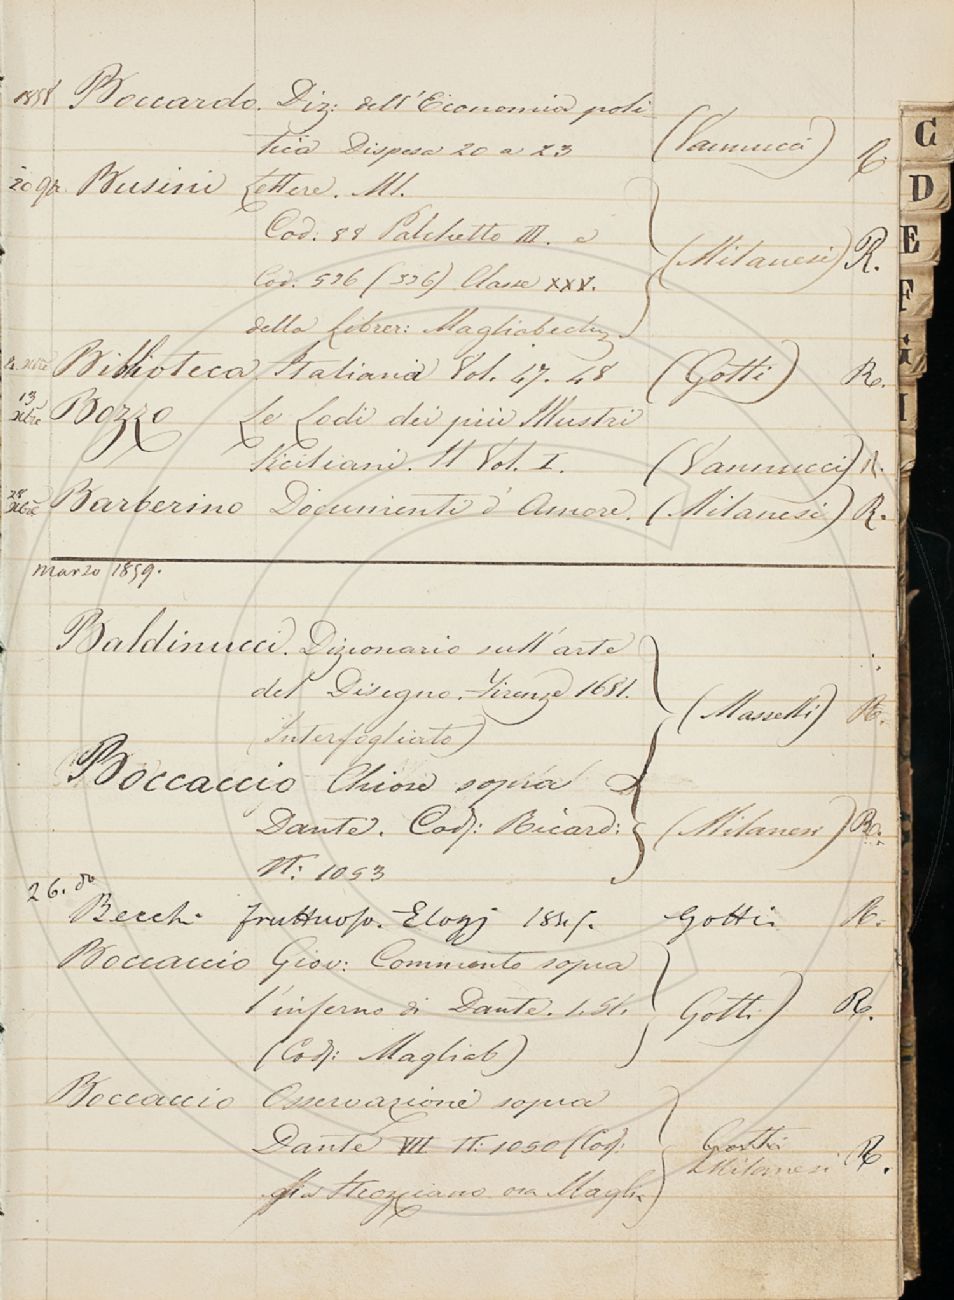 1858 Boccardo. Diz: dell'Economia poli
tica Dispesa 20 a 23 (Vannucci) R
20 Busini Lettere. MS.
Cod. 88 Palchetto III. e
Cod. 536 (336) Classe XXV. (Milanesi) R.
della Librer: Magliabech
Biblioteca Italiana Vol. 47. 48 (Gotti) R.
13 Xbre Bozzo Le Lodi dei più Illustri
Siciliani. Vol. I. (Vannucci) R.
28 Xbre Barberino Documenti d'Amore. (Milanesi) R.
Marzo 1859.
Baldinucci. Dizionario sull'arte
del Disegno. Firenze 1681. (Masselli) R.
(Interfogliato)
Boccaccio Chiose sopra
Dante. Cod: Ricard: (Milanesi) R.
N: 1053
26. do
Becchi Fruttuoso. Elogj 184 Gotti R.
Boccaccio Giov: Commento sopra
l'inferno di Dante. (Gotti) R.
(Cod: Magliab)
Boccaccio Osservazione sopra
Dante VII N: 1050 (Cod: Gotti
Milanesi R.
già Strozziano ora Magli
C
D
E
F
G
I